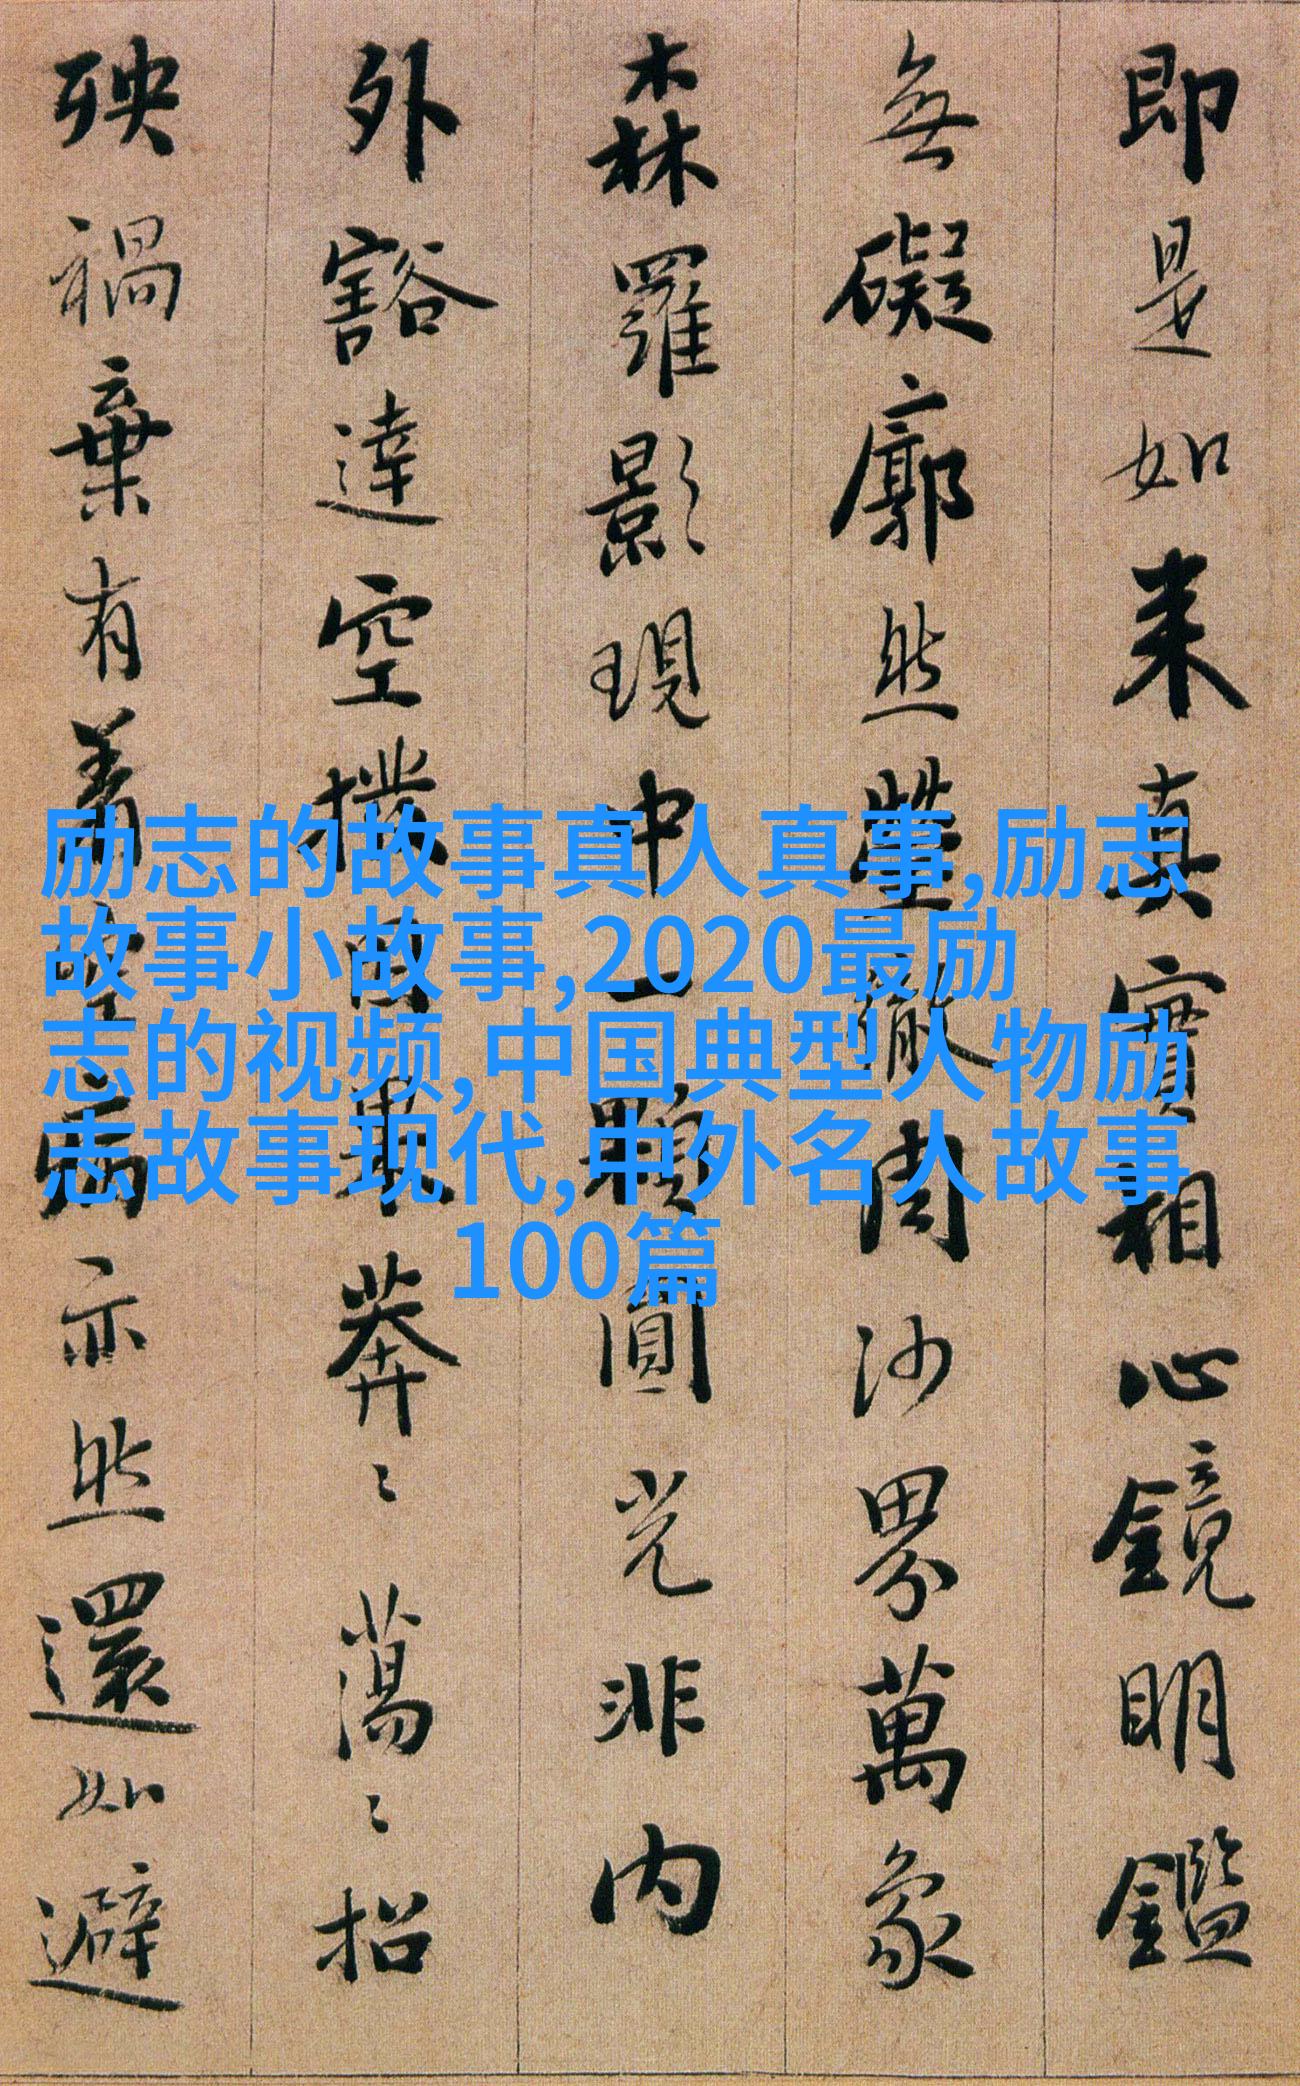 即是如来真實相心鏡明鑑
無礙廓然瑩徹周沙界萬象
森羅影現中一顆圓光非內
外豁達空撥因果莽〻蕩〻招
殃禍棄有著空病亦然還如避
励志的故事真人真事,励志
故事小故事,2020最励
志的视频,中国典型人物励
志故事现代,中外名人故事
100篇